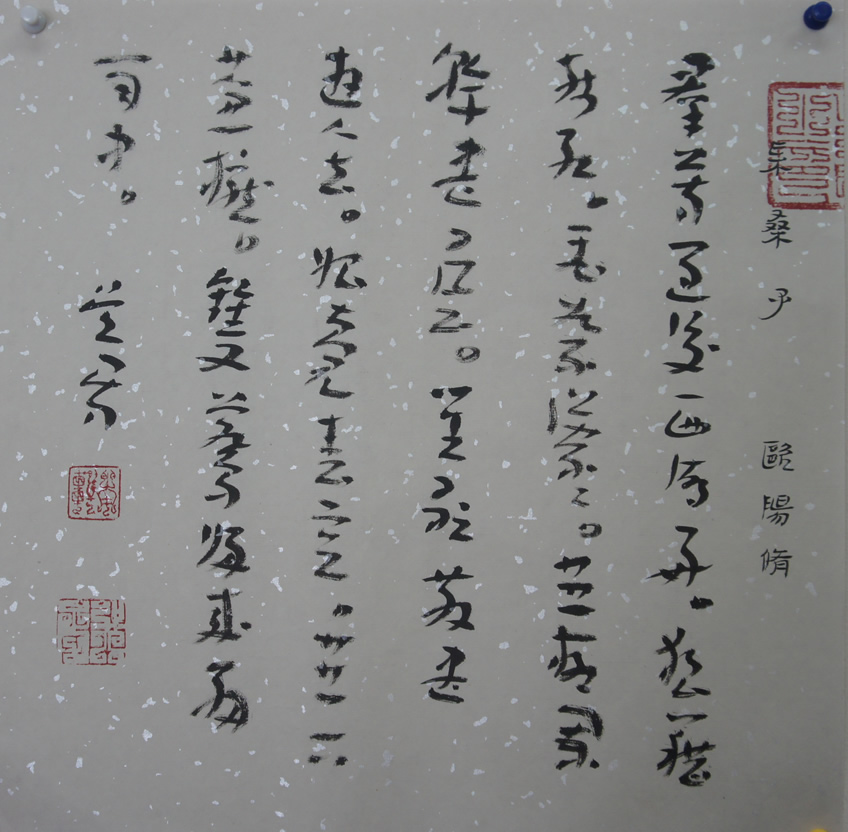 采桑子 歐陽脩
群芳過後西湖好。狼籍
殘紅。飛絮濛〻。垂柳闌
干盡日風。笙歌散盡
遊人去。始覺春空。垂下
簾櫳。雙燕歸來細
雨中。